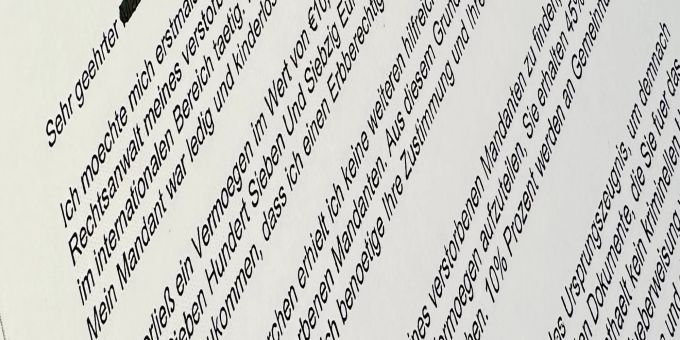 Sehr geehrter
Ich moechte mich erstmal
Rechtsanwalt meines verstorb
im internationalen Bereich taetig.
Mein Mandant war ledig und kinderlos
erließ ein Vermoegen im Wert von €10,
ieben Hundert Sieben Und Siebzig Eu
ukommen, dass ich einen Ertberechtig
rchen erhielt ich keine weiteren hilfreich
rbenen Mandanten. Aus diesem Grund
ch benoetige Ihre Zustimmung und Ihre
nes verstorbenen Mandanten zu finden
ermoegen aufzuteilen, Sie erhalten 45%
hen. 10% Prozent werden an Gemeinn
es Ursprungszeugnis, um demnach
en Dokumente, die Sie fuer das
nthaelt kein kriminellen
ueberweisung
und